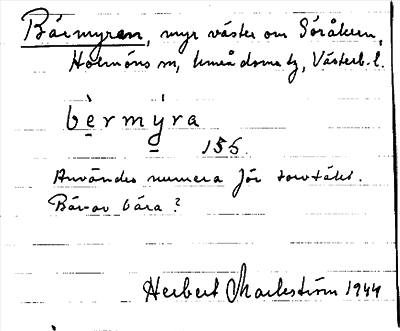 Bärmyren, myr väster om Söråkern,
Holmöns sn, Umeå domstg, Västerb. l.
bèrmýra
155.
Användes numera för torvtäkt.
Bär av bära?
Herbert Markström 1944